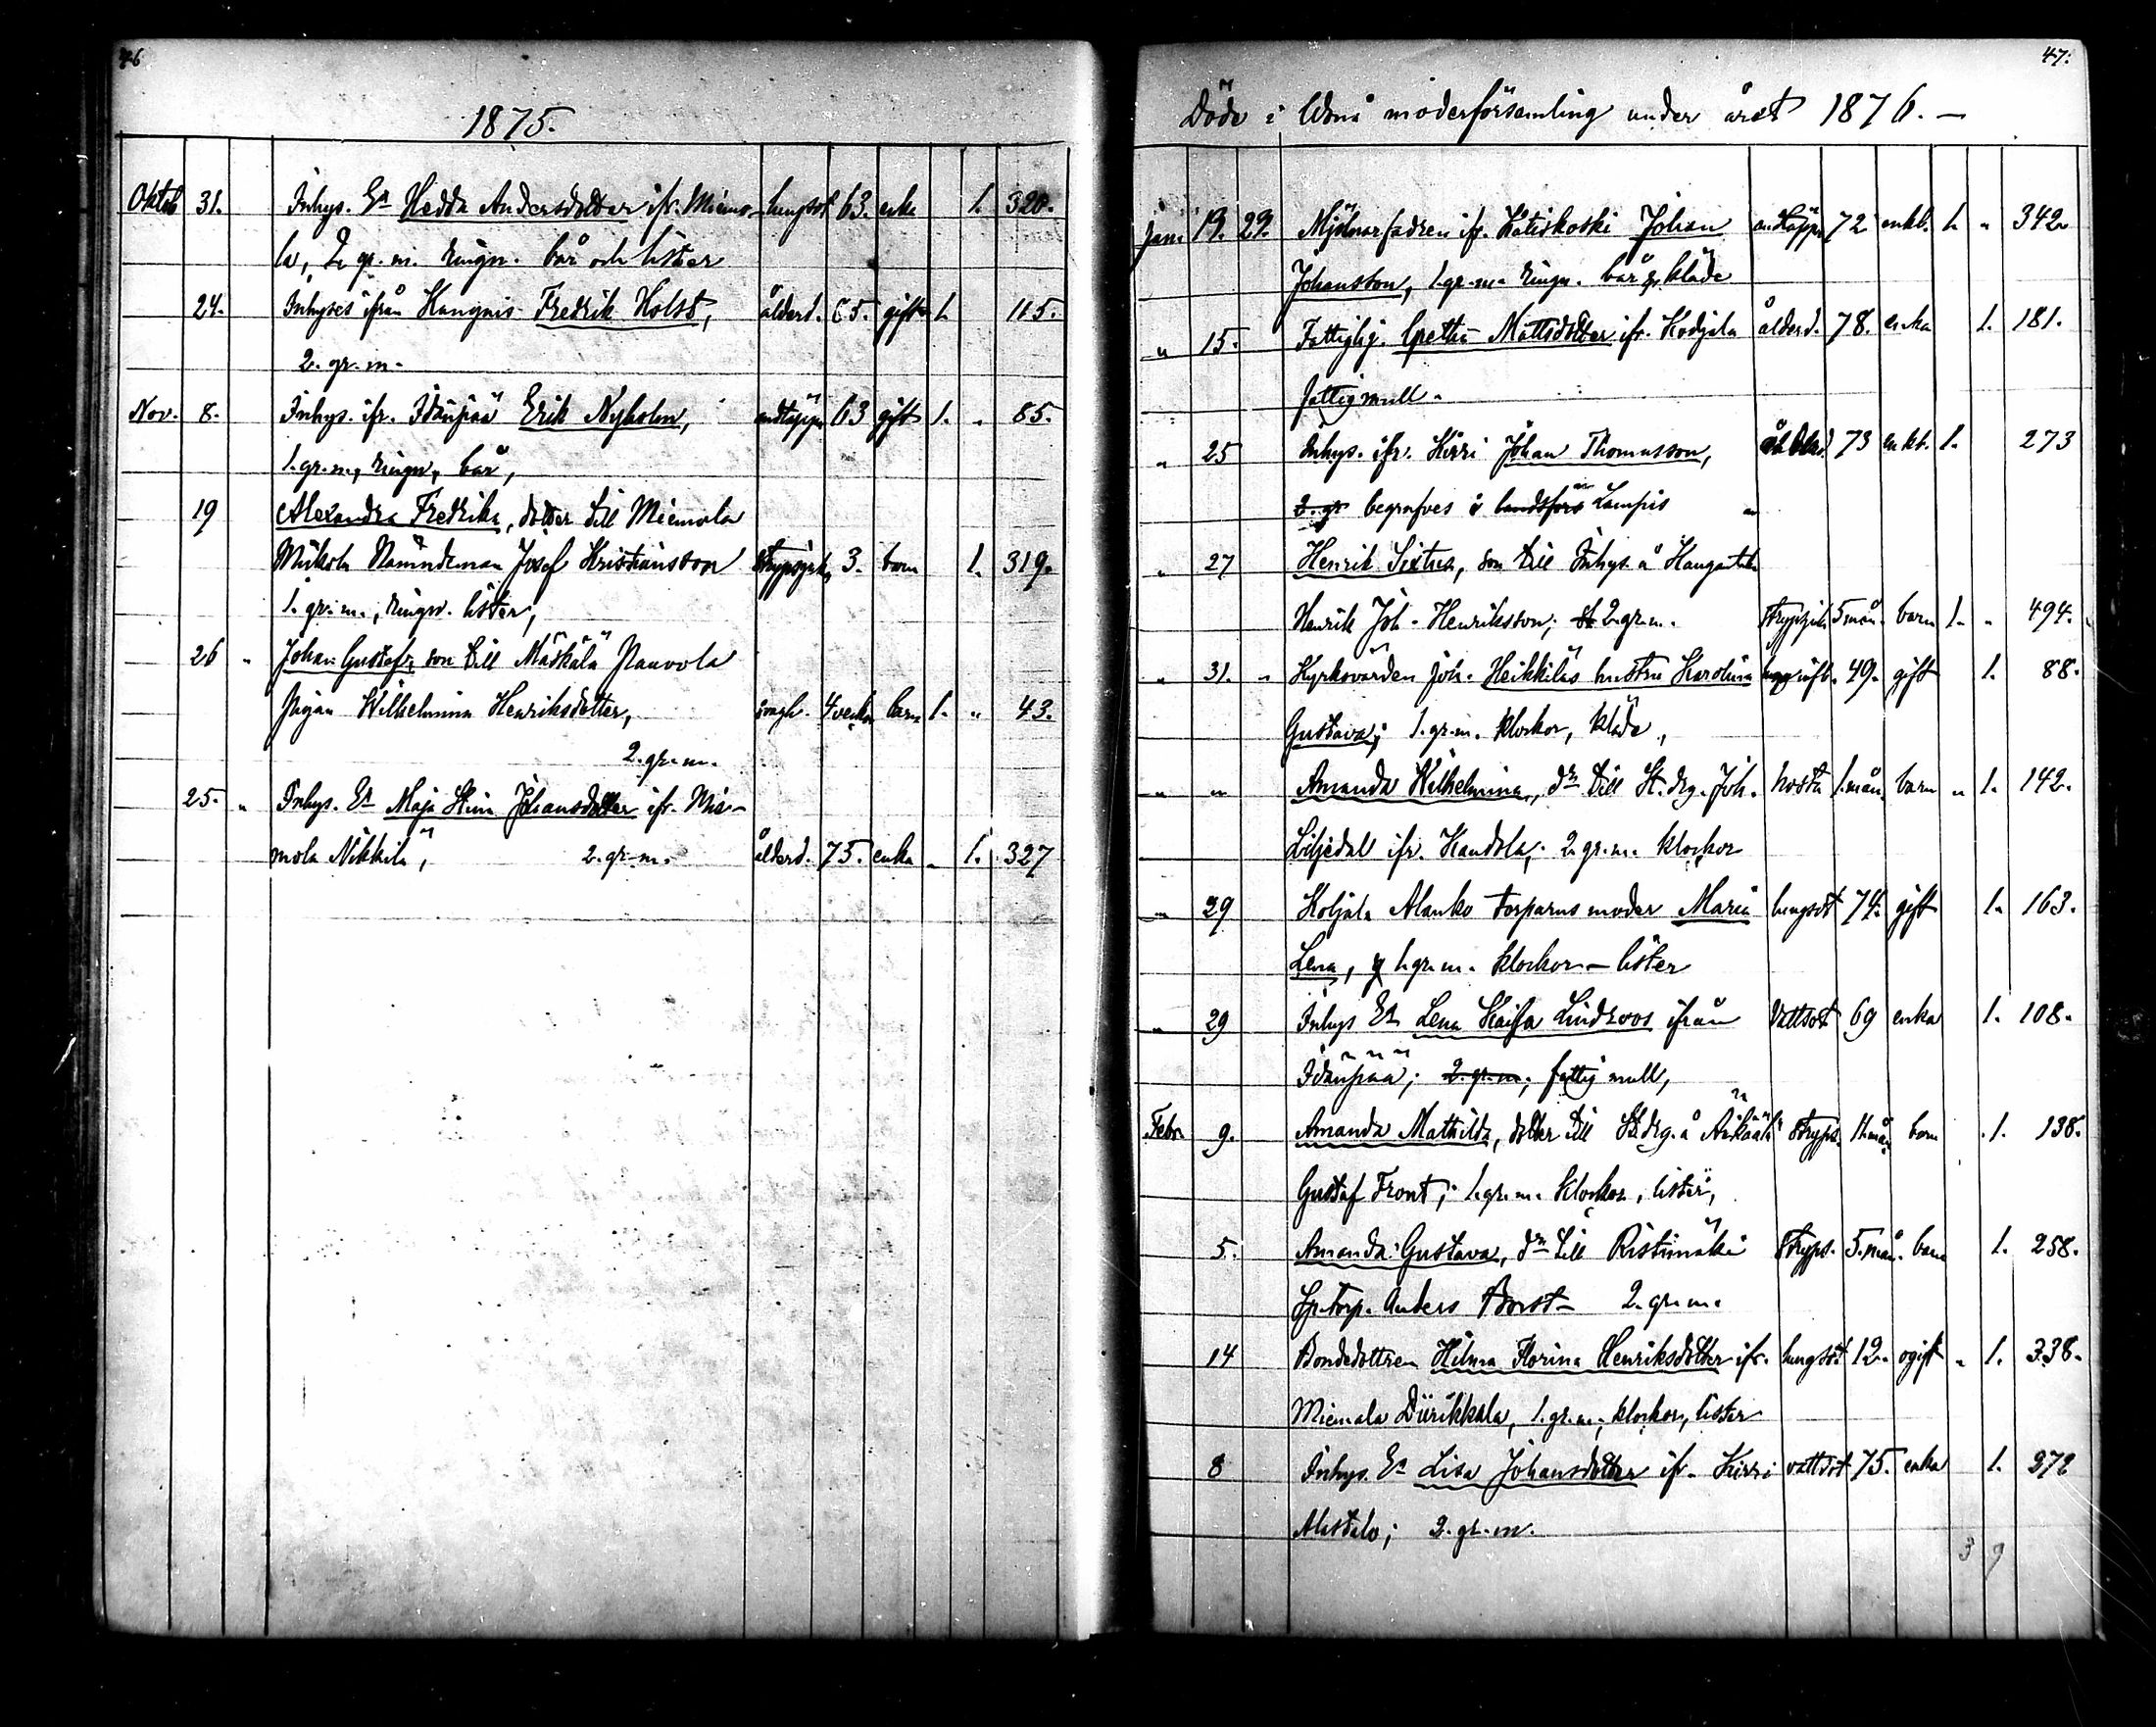 46
1875.
Oktob 31. Inhys. Ea Hedda Andersdotter ifr. Miemo- lungsot 63. enka 1. 320.
la, 2 gr. m. ringn. bår och lister
24. Inhyses ifrån Hangnis Fredrik Holst, ålderd. 65. gift 1. 115.
2. gr. m.
Nov. 8. Inhys. ifr. Idänpää Erik Nyholm, andtäppa 63 gift 1. 85.
1. gr. m., ringn, bår,
19 Alexandra Fredrika, dotter till Miemola
Mikola Nämndeman Josef Kristiansson Strypsjuk 3. barn 1. 319.
1. gr. m., ringn. lister,
26 " Johan Gustaf, son till Mäskälä Paavola
pigan Wilhelmina Henriksdotter, 4 veckor barn 1. " 43.
2. gr. m.
25. " Inhys. Ea Maja Stina Johansdotter ifr. Mie-
mola Nikkilä, 2. gr. m. ålderd. 75. enka " 1. 327
47.
Döde i Wånå moderförsamling under året 1876. —
Jani 19. 29. Mjölnarfadren ifr. Katiskoski Johan andtäppa 72 enkl. 1. " 342.
Johansson, 1. gr. m. ringn. bår & kläde
" 15. Fattighj. Greta Mattsdotter ifr. Kodjala ålderd. 78. enka 1. 181.
fattigmull.
" 25 Inhys. ifr. Kirri Johan Thomasson, ålderd. 73 enkl. 1. 273
2. gr begrafves i landsförs Lampis "
" 27 Henrik Sixtus, son till Inhys. å Haugasten
Henrik Joh. Henriksson; 2 gr. m. Strypsjuk 5 mån. barn 1. " 494.
" 31. " Kyrkovärden Joh. Heikkiläs hustru Karolina 49. gift 1. 88.
Gustava; 1. gr. m. klockor, kläde,
" " Amanda Wilhelmina, dr till St. drg. Joh. hosta 1. mån. barn " 1. 142.
Liljedal ifr. Kandola; 2. gr. m. klockor
" 29 Koljala Alanko torparns moder Maria lungsot 74. gift 1. 163.
Lena, 1. gr. m. klockor — lister
" 29 Inhys Ea Lena Kaisa Lindroos ifrån Vattsot 69 enka 1. 108.
Idänpää; 2. gr. m; fattig mull,
Febr. 9. Amanda Mathilda, dotter till St. drg. å Stryps. 11 mån. barn 1. 138.
Gustaf Front; 1. gr. m. klockor, lister,
5. Amanda Gustava, dr till Ristimäki Stryps. 5. mån. barn 1. 258.
Sp. torp. Anders Borst — 2. gr. m.
14 Bondedottren Hilma Florina Henriksdotter ifr. lungsot 12. ogift " 1. 338.
Miemala Diirikkala, 1. gr. m., klockor, lister
8 Inhys. Ea Lisa Johansdotter ifr. Kirri vattsot 75. enka 1. 272
Alastalo; 2. gr. m.
3 9